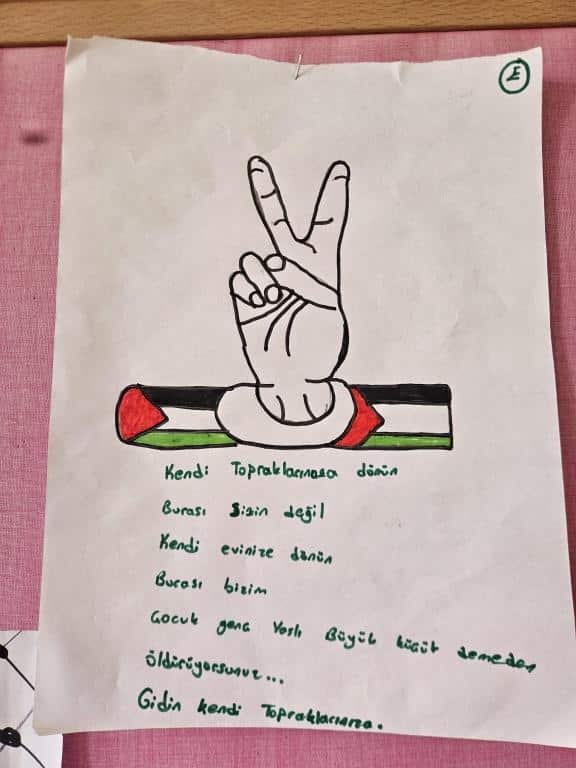 E
Kendi Topraklarınıza dönün
Burası sizin değil
Kendi evinize dönün
Burası bizim
Çocuk genç Yaşlı Büyük küçük demeden
öldürüyorsunuz...
Gidin kendi Topraklarınıza.